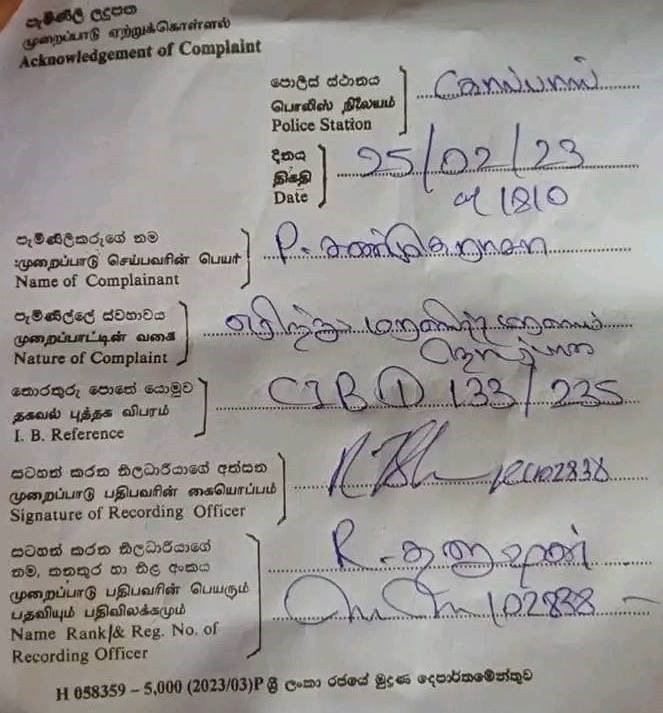 පැමිණිලි ලදුපත
முறைப்பாடு ஏற்றுக்கொள்ளல்
Acknowledgement of Complaint
පොලිස් ස්ථානය
பொலிஸ் நிலையம்
Police Station
දිනය
திகதி
Date
25/02/23
at 1810
පැමිණිලිකරුගේ නම
முறைப்பாடு செய்பவரின் பெயர்
Name of Complainant
P.
පැමිණිල්ලේ ස්වභාවය
முறைப்பாட்டின் வகை
Nature of Complaint
තොරතුරු පොතේ යොමුව
தகவல் புத்தக விபரம்
I. B. Reference
CIB ① 133/235
සටහන් කරන නිලධාරියාගේ අත්සන
முறைப்பாடு பதிபவரின் கையொப்பம்
Signature of Recording Officer
102838
සටහන් කරන නිලධාරියාගේ
නම, තනතුර හා නිළ අංකය
முறைப்பாடு பதிபவரின் பெயரும்
பதவியும் பதிவிலக்கமும்
Name Rank & Reg. No. of
Recording Officer
R.
102838
H 058359 – 5,000 (2023/03) P ශ්‍රී ලංකා රජයේ මුද්‍රණ දෙපාර්තමේන්තුව